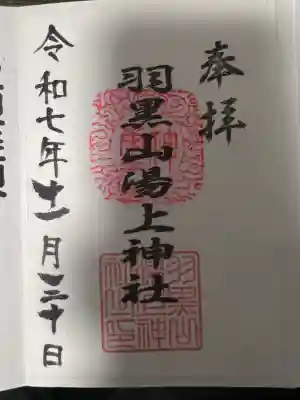 奉拝
羽黒山湯上神社
令和七年十一月二十日